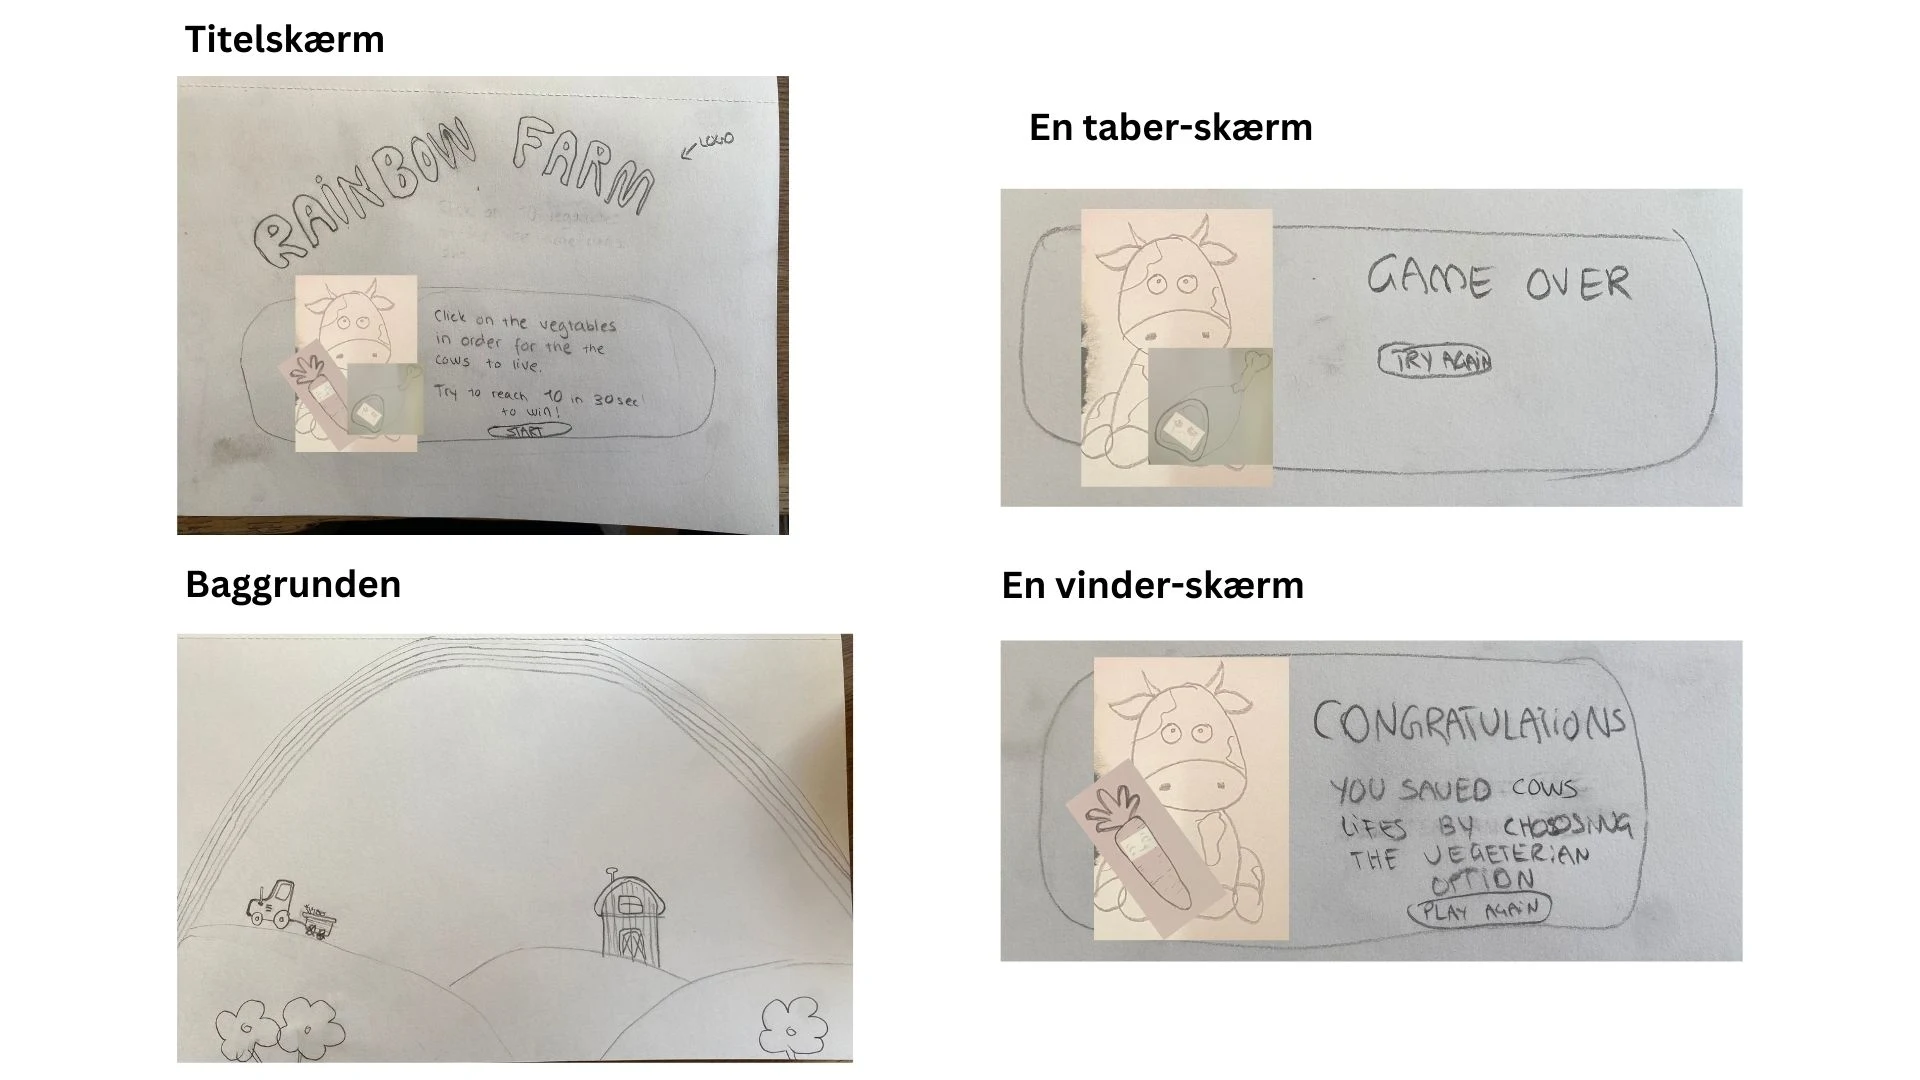 Titelskærm
RAINBOW FARM
LOGO
Click on the vegtables
in order for the the
cows to live.
Try to reach 10 in 30sec
to win!
START
En taber-skærm
GAME OVER
TRY AGAIN
Baggrunden
En vinder-skærm
CONGRATULATIONS
YOU SAVED COWS
LIFES BY CHOOSING
THE VEGETERIAN
OPTION
PLAY AGAIN